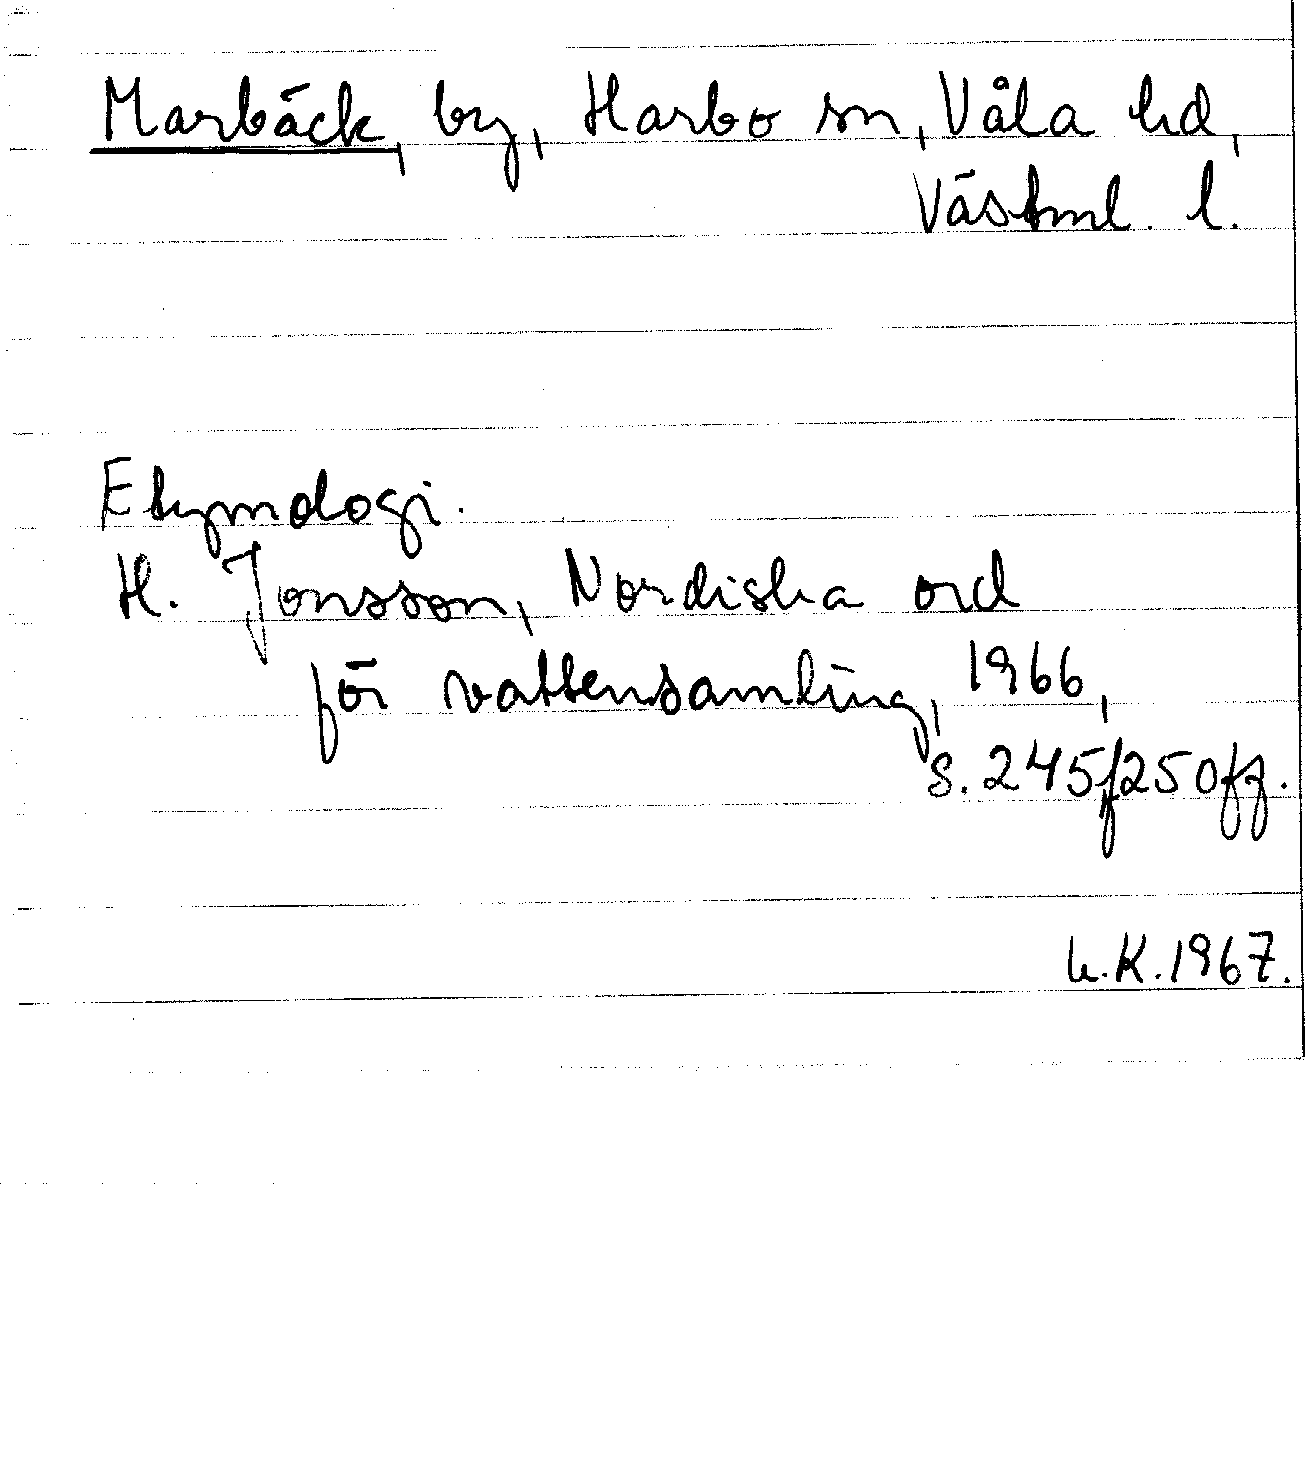 Marbäck, by, Harbo sn, Våla hd,
Västml. l.
Etymologi.
H. Jonsson, Nordiska ord
för vattensamling, 1966,
s. 245f, 250ff.
L.K. 1967.